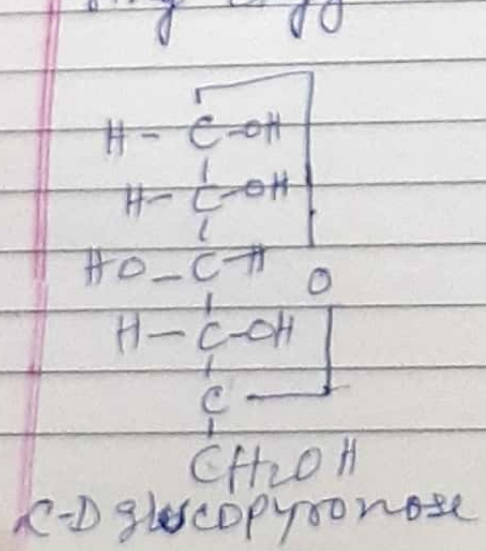 H - C-OH
H- C-OH
HO-C-H
O
H-C-OH
C
CH2OH
α-D glucopyronose